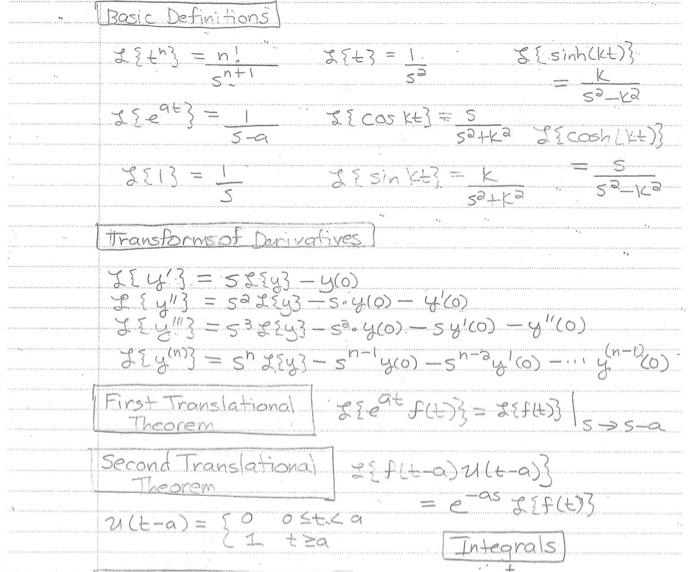 Basic Definitions
ℒ{tⁿ} = n!/sⁿ⁺¹   ℒ{t} = 1/s²   ℒ{sinh(kt)} = k/(s²-k²)
ℒ{eᵃᵗ} = 1/(s-a)   ℒ{cos kt} = s/(s²+k²)   ℒ{cosh(kt)} = s/(s²-k²)
ℒ{1} = 1/s   ℒ{sin kt} = k/(s²+k²)
Transforms of Derivatives
ℒ{y'} = sℒ{y} - y(0)
ℒ{y''} = s²ℒ{y} - s·y(0) - y'(0)
ℒ{y'''} = s³ℒ{y} - s²·y(0) - sy'(0) - y''(0)
ℒ{y⁽ⁿ⁾} = sⁿℒ{y} - sⁿ⁻¹y(0) - sⁿ⁻²y'(0) - ... y⁽ⁿ⁻¹⁾(0)
First Translational Theorem
ℒ{eᵃᵗ f(t)} = ℒ{f(t)} |s→s-a
Second Translational Theorem
ℒ{f(t-a)𝒰(t-a)} = e⁻ᵃˢ ℒ{f(t)}
𝒰(t-a) = { 0   0≤t<a
{ 1   t≥a
Integrals